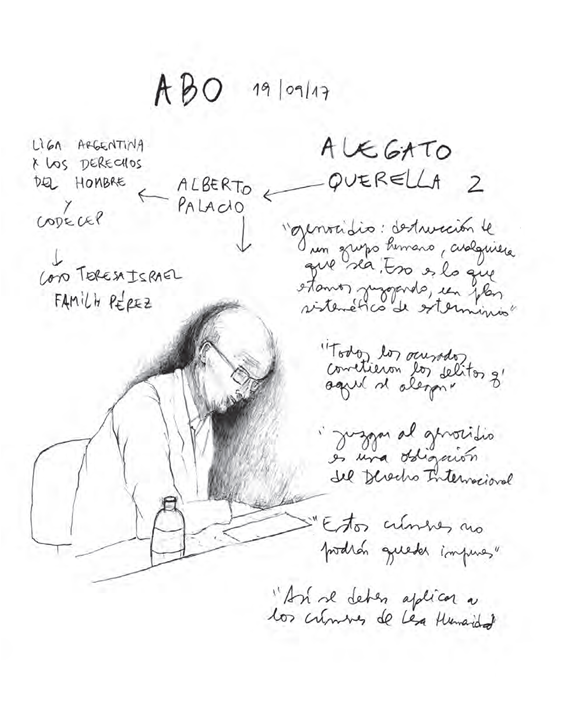 ABO 19/09/17
LIGA ARGENTINA
X LOS DERECHOS
DEL HOMBRE
Y
CODECEP
CASO TERESA ISRAEL
FAMILIA PÉREZ
ALBERTO
PALACIO
ALEGATO
QUERELLA 2
"genocidio: destrucción de
un grupo humano, cualquiera
que sea. Eso es lo que
estamos juzgando, un plan
sistemático de exterminio"
"Todos los acusados
cometieron los delitos q'
aquí se alegan"
"juzgar al genocidio
es una obligación
del Derecho Internacional
"Estos crímenes no
podrán quedar impunes"
"Así se deben aplicar a
los crímenes de Lesa Humanidad